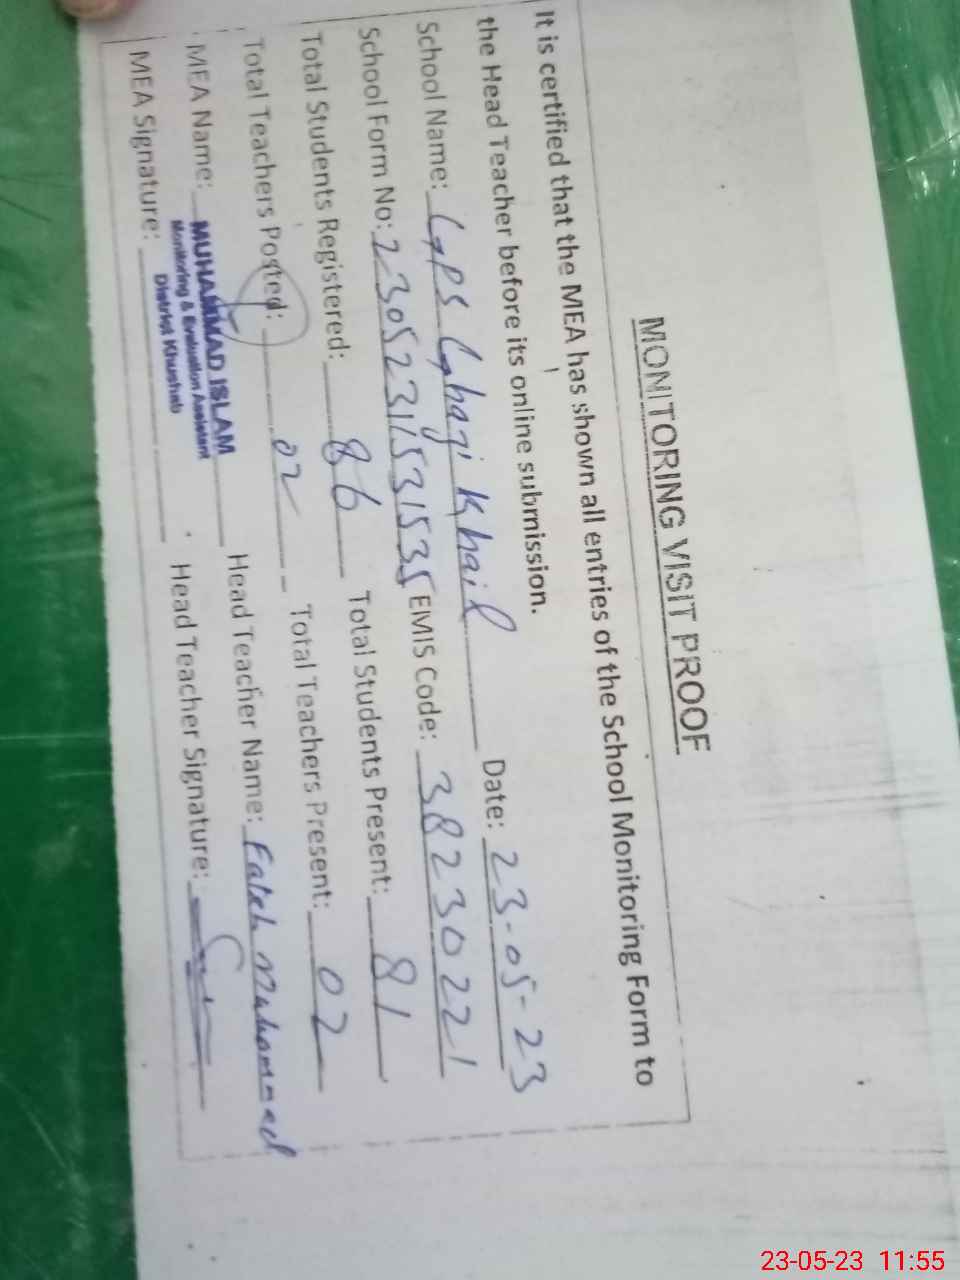 MONITORING VISIT PROOF
It is certified that the MEA has shown all entries of the School Monitoring Form to
the Head Teacher before its online submission.
School Name: GPS Ghagi Khail Date: 23-05-23
School Form No: 23052311531535 EMIS Code: 38230221
Total Students Registered: 86 Total Students Present: 81
Total Teachers Posted: 02 Total Teachers Present: 02
MEA Name: MUHAMMAD ISLAM Head Teacher Name: Fateh Muhammad
Monitoring & Evaluation Assistant
District Khushab
MEA Signature: Head Teacher Signature:
23-05-23 11:55